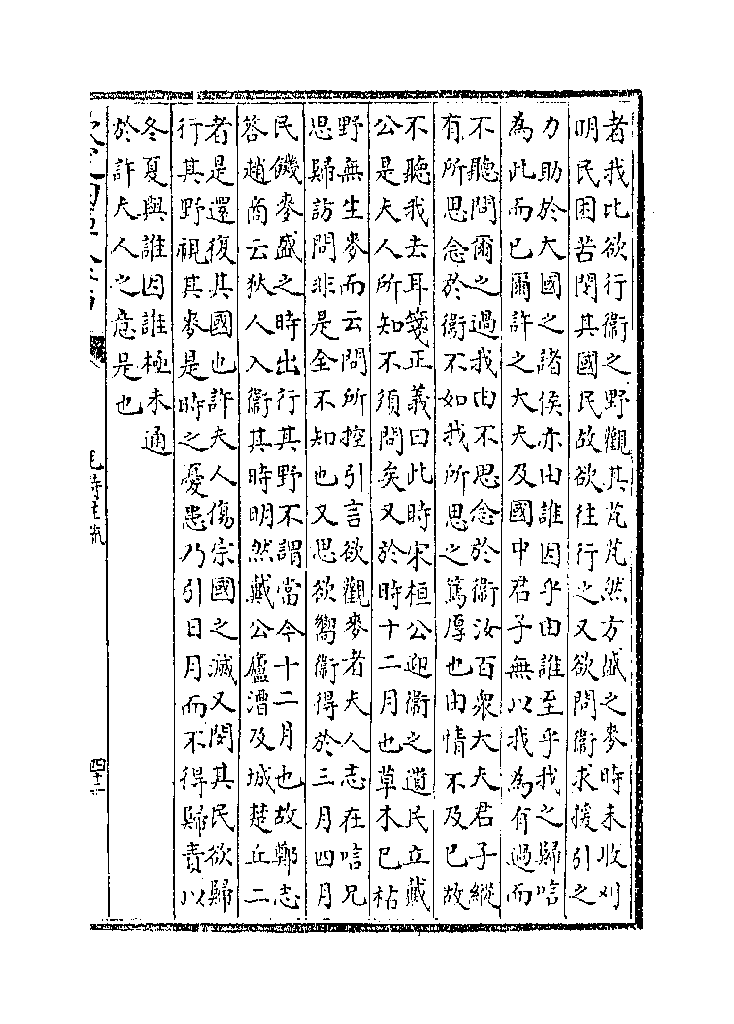 者我比欲行衞之野觀其芃芃然方盛之麥時未收刈
明民困苦閔其國民故欲往行之又欲問衞求援引之
力助於大國之諸侯亦由誰因乎由誰至乎我之歸唁
為此而已爾許之大夫及國中君子無以我為有過而
不聽問爾之過我由不思念於衞汝百衆大夫君子縱
有所思念於衞不如我所思之篤厚也由情不及已故
不聽我去耳箋正義曰此時宋桓公迎衞之遺民立戴
公是夫人所知不須問矣又於時十二月也草木已枯
野無生麥而云問所控引言欲觀麥者夫人志在唁兄
思歸訪問非是全不知也又思欲嚮衞得於三月四月
民饑麥盛之時出行其野不謂當今十二月也故鄭志
答趙商云狄人入衞其時明然戴公廬漕及城楚丘二
者是還復其國也許夫人傷宗國之滅又閔其民欲歸
行其野視其麥是時之憂思乃引日月而不得歸責以
冬夏與誰因誰極未通
於許夫人之意是也
毛詩註疏
四十二